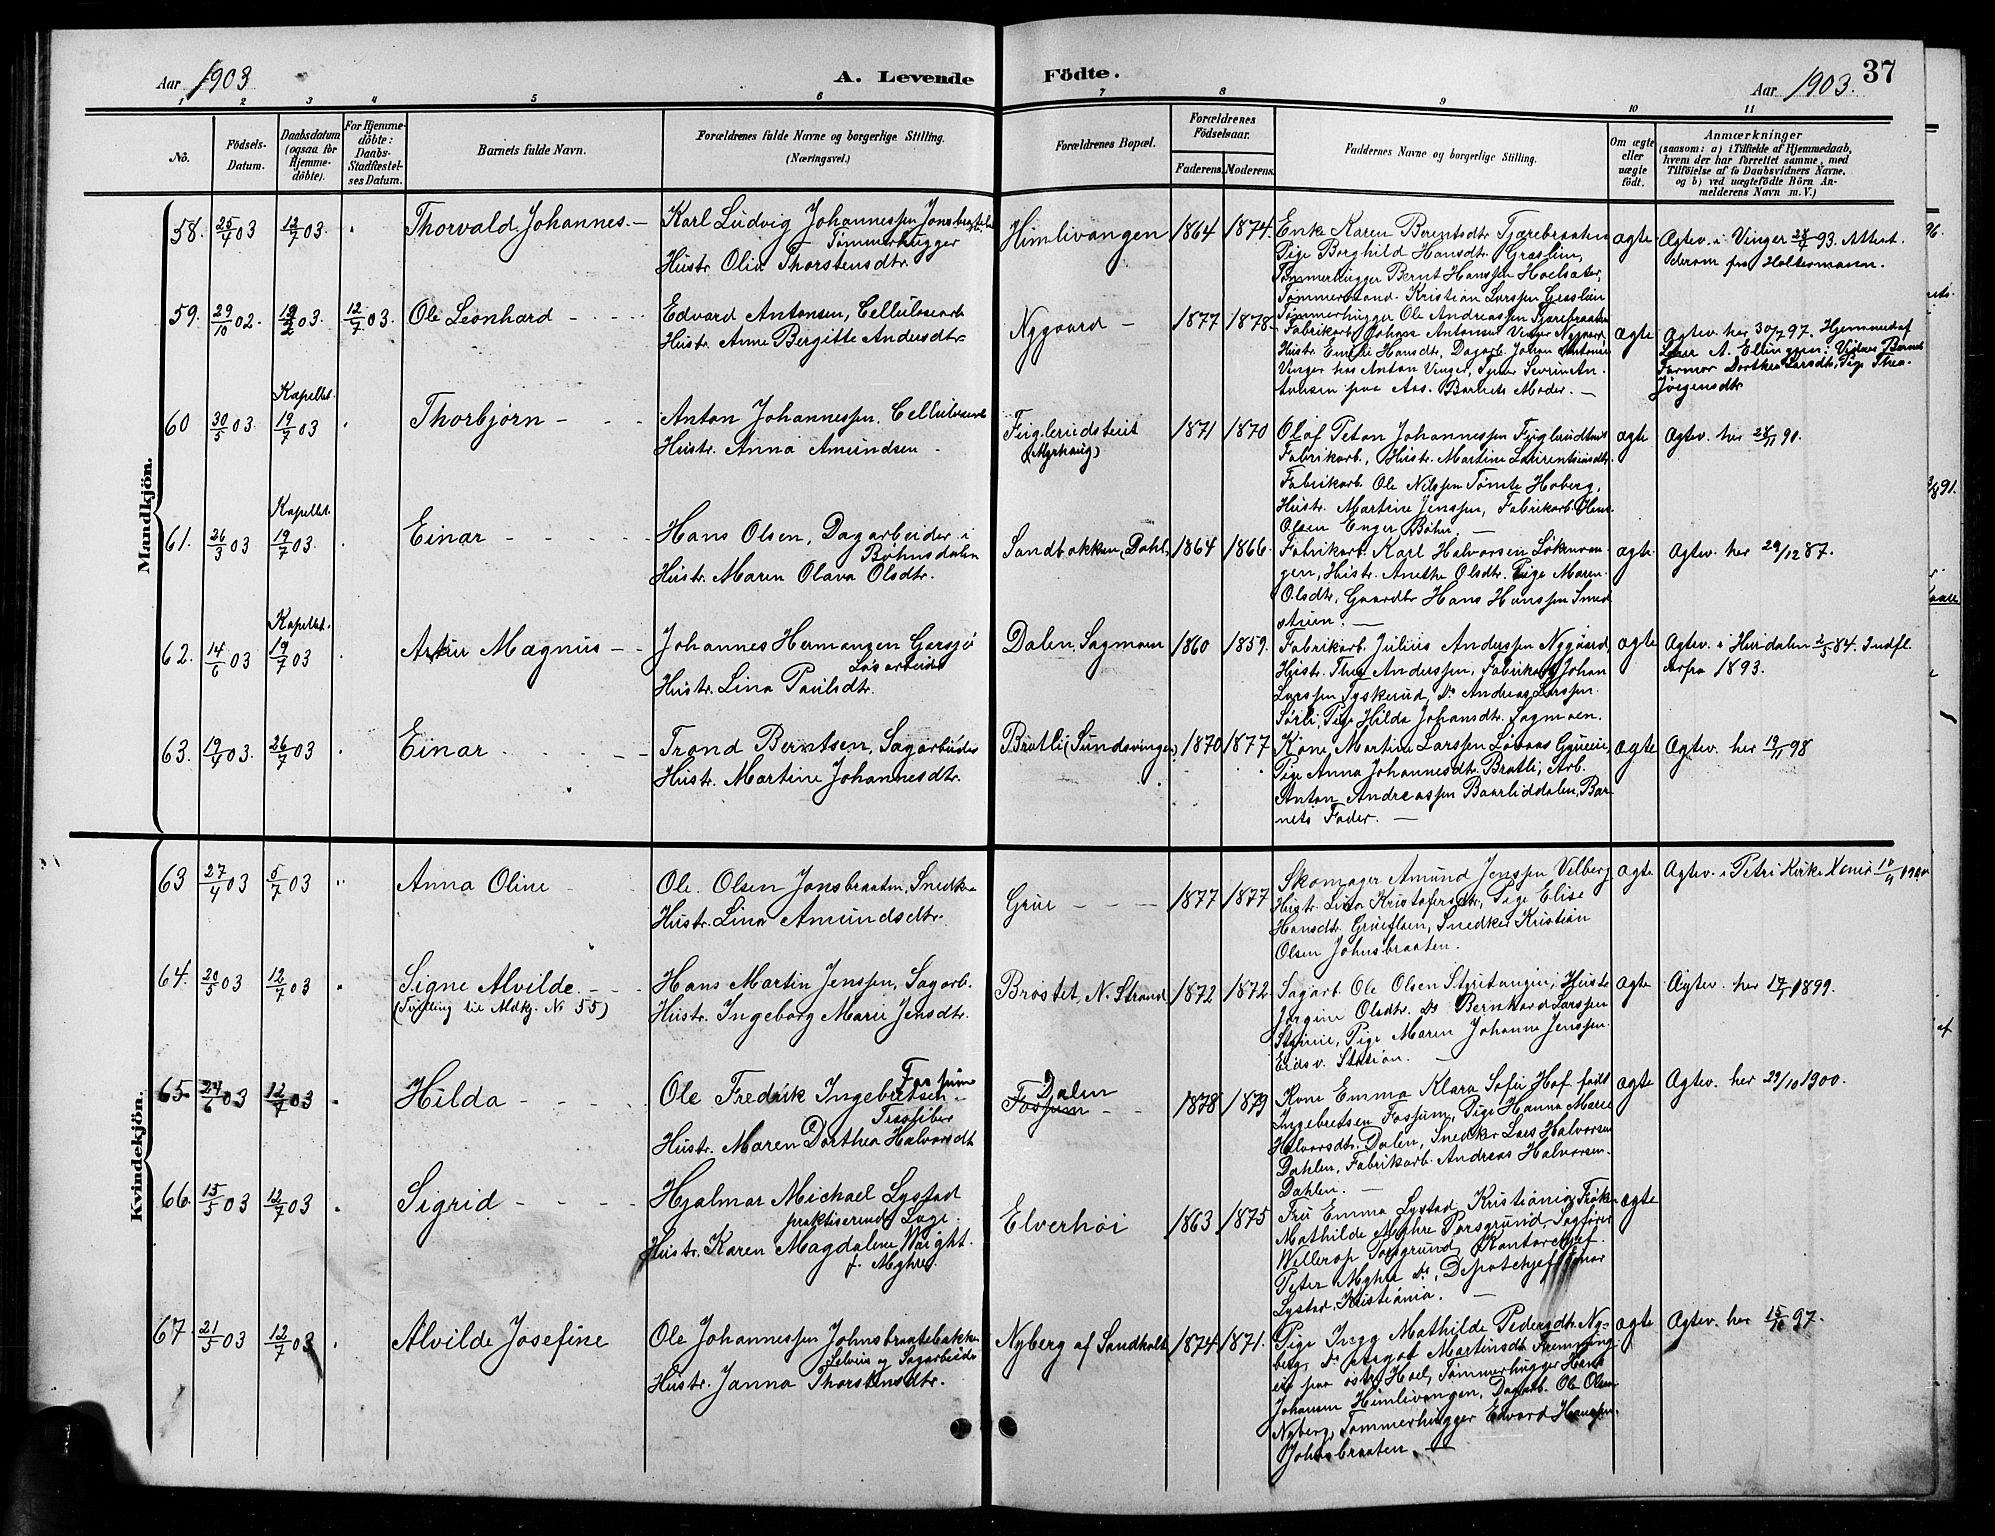 Aar 1903
A. Levende
Födte.
Aar 1903.
37
1 2 3 4 5 6 7 8 9 10 11
No.
Födsels-
Datum.
Daabsdatum
(ogsaa for
Hjemme-
döbte).
For Hjemme-
döbte:
Daabs-
Stadfæstel-
ses Datum.
Barnets fulde Navn.
Forældrenes fulde Navne og borgerlige Stilling.
(Næringsvei.)
Forældrenes Bopæl.
Forældrenes
Födselsaar.
Faderens. Moderens.
Faddernes Navne og borgerlige Stilling.
Om ægte
eller
uægte
født.
Anmærkninger
(saasom: a) i Tilfælde af Hjemmedaab,
hvem der har forrettet samme, med
Tilföielse af to Daabsvidners Navne,
og b) ved uægtefödte Börn An-
melderens Navn m. V.)
Mandkjön.
58. 25/4 03 12/7 03. Thorvald Johannes.
Karl Ludvig Johannessen
Tømmerhugger
Hustr. Olia Thorstensdtr.
Himlivangen 1864 1874.
Enke Karen Berentsdtr. Tjærebraaten
Pige Borghild Hansdtr. Græslien,
Tømmerhugger Bernt Hanssen
Kristian Larssen Græslien
Tømmerhugger Ole Andreassen Tjærebraaten
ægte Ægtev. i Vinger 93. Attest
derom fra Holtermann.
59. 29/10 02. 03. 12/7 03. Ole Leonhard
Edvard Antonsen, Cellulosearb
Hustr. Anne Bergitte Andersdtr.
Nygaard 1877 1878
Fabrikarb. Johan Antonsen Vinger Nygaard,
Hustr. Emilie Hansdtr, Dagarb. Johan Antonsen
Vinger hos Anton Vinger,
paa Aas. Barnets Moder.
ægte Ægtev. her 30/7 97. Hjemmed. af
Lærer A. Ellingsen; Vidner Barnets
Farmor Dorthea Larsdtr, Pige Thea
Jørgensdtr
60 30/5 03. Kapellet. 19/7 03 Thorbjørn
Anton Johannessen. Cellulosearb
Hustr. Anna Amundsen
Feiglerudsteiet
(Myrhaug)
1871 1870
Olaf Peton Johannessen
Fabrikarb., Hustr. Martine Laurentsensdtr.
Fabrikarb. Ole Nilssen Tømte Hoberg,
Hustr. Martine Jenssen, Fabrikarb. Hans
Olsen Enger Bøhn.
ægte Ægtev. her 90.
61. 26/3 03 Kapellet. 19/7 03. Einar
Hans Olsen, Dagarbeider i
Bøhnsdalen
Hustr. Maren Olava Olsdtr.
Sandbakken, Dahl. 1864 1866.
Fabrikarb. Karl Halvorsen Løkenvan-
gen, Hustr. Anethe Olsdtr. Pige Maren
Olsdtr, Gaardbr Hans Hanssen Smed
stuen.
ægte. Ægtev. her 29/12 87.
62. 14/6 03 Kapellet. 19/7 03 Artur Magnus
Johannes Hermansen Gersjø
Løsarbeider
Hustr. Lina Paulsdtr.
Dalen, Sagmoen 1860 1859.
Fabrikarb. Julius Anderssen Nygaard,
Hustr. Thea Anderssen, Fabrikarb Johan
Larssen Tyskerud, Do Andreas Larssen
Sørli, Pige Hilda Johansdtr. Sagmoen.
ægte Ægtev. i Hurdalen 2/5 84. Indfl.
1893.
63. 19/4 03. 26/7 03 Einar
Trond Berntsen, Sagarbeider
Hustr. Martine Johannesdtr.
Bratli (Sundsvingen) 1870 1877
Kone, Martine Larssen
Pige Anna Johannesdtr. Bratli, Arb.
Anton Andreassen Baarliddalen, Bar-
nets Fader.
ægte Ægtev. her 98
Kvindekjön.
63 27/4 03 5/7 03 Anna Oline
Ole Olsen Jonsbraaten, Snedker
Hustr. Lina Amundsdtr.
Grue 1877 1877
Skomager Amund Jenssen Vilberg
Hustr. Lina Kristofersdtr, Pige Elise
Hansdtr. Grueflaen, Snedker Kristian
Olsen Johnsbraaten.
ægte Ægtev. i Petri Kirke 1900
64. 20/5 03 12/7 03 Signe Alvilde.
(Tvilling til Mdkj. No 55)
Hans Martin Jenssen, Sagarb.
Hustr. Ingeborg Marie Jensdtr.
Brøstet, N. Strand 1872 1872.
Sagarb. Ole Olsen Styritangen, Hustr.
Jørgine Olsdtr. Do Bernhard Larssen
Pige Maren Johanne Jenssen.
Eidsv. Station.
ægte Ægtev. her 1899.
65. 24/6 03 12/7 03 Hilda
Ole Fredrik Ingebretsen
Fossum
Træsliber
Hustr. Maren Dorthea Halvorsdtr
Dalen
Fossum
1878 1879
Kone Emma Klara Sofie Hof født
Ingebretsen Fossum, Pige Hanna Marie
Halvorsdtr. Dalen, Snedker Lars Halvorsen
Dahlen, Fabrikarb. Andreas Halvorsen.
Dahlen.
ægte Ægtev. her 29/10 1900.
66. 15/5 03 12/7 03 Sigrid
Hjalmar Michael Lystad
praktiserende Læge.
Hustr. Karen Magdalene Wright
f. Myhre.
Elverhøi 1863 1875
Fru Emma Lystad, Kristiania, Frøken
Mathilde Myhre Porsgrund, Sagfører
Wellerop Porsgrund, Kontorchef
Peter Myhre Do, Depotchef Einar
Lystad, Kristiania.
ægte
67. 21/5 03 12/7 03 Alvilde Josefine
Ole Johannessen Johnsbraatebakken
Selveier og Sagarbeider
Hustr. Janna Thorstensdtr.
Nyberg af Sandholt 1874 1871.
Pige Inga Mathilde Pedersdtr. Ny-
berg, Do Aagot Martinsdtr
paa østre Hoel, Tømmerhugger Hans
Johansen Himlivangen, Dagarb. Ole Olsen
Nyberg, Tømmerhugger Edvard Hanssen.
Johnsbraaten.
ægte Ægtev. her 97.